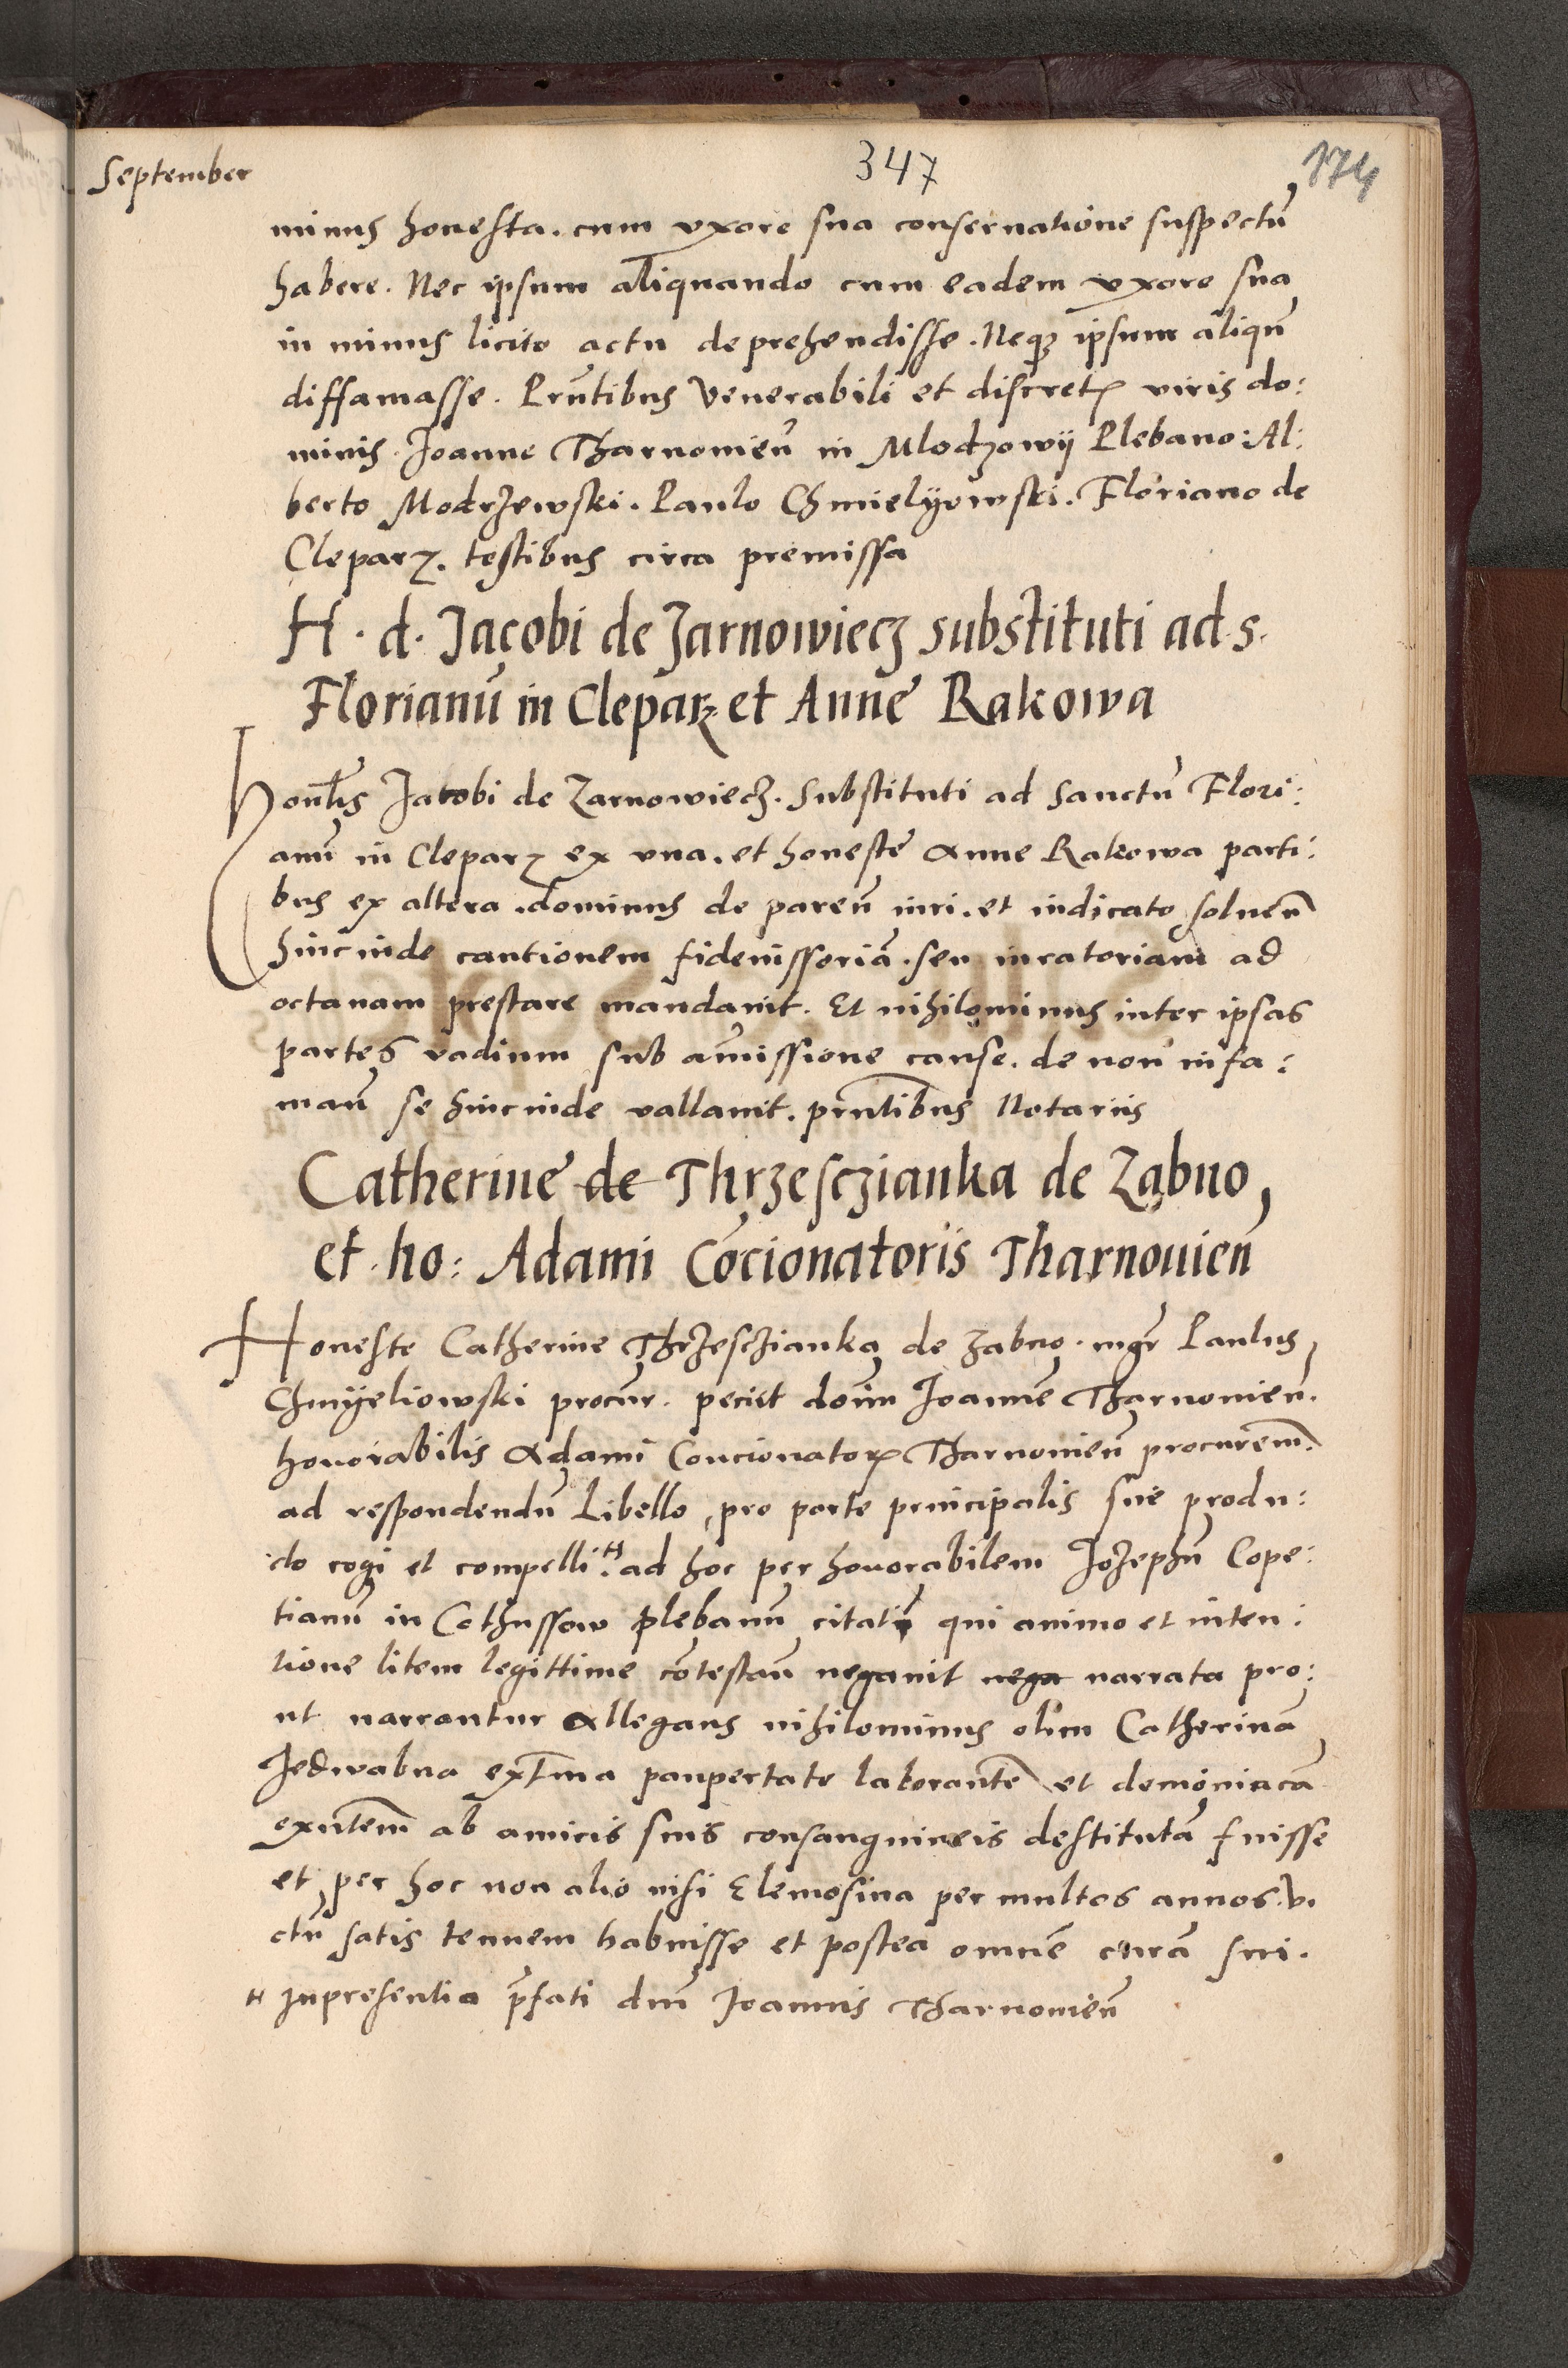 September
347
174
minus honesta. cum vxore sua conseruatione suspectū
habere. Nec ipsum aliquando cum eadem vxore sua
in minus licito actu deprehendisse. Neqȝ ipsum aliqn̄
diffamasse. Pn̄tibus Venerabili et discretꝭ viris do:
minis. Joanne Tharnouien̄ in Mlodzowij Plebano: Al:
berto Modrzewski. Paulo Chmielyowski. Floriano de
Cleparz. testibus circa premissa
H. d. Jacobi de Zarnowiecz substituti ad s.
Florianū in Cleparz et Anne Rakowa
Honlis Jacobi de Zarnowiecz. Substituti ad Sanctū Flori:
anū in Cleparz ex vna. et honeste Anne Rakowa parti:
bus ex altera. dominus de paren̄ iuri. et iudicato soluen̄
hincinde cautionem fideiussoriā. seu iuratoriam ad
octauam prestare mandauit. Et nihilominus inter ipsas
partes vadium sub amissione cause. de non infa:
man̄ se hincinde vallauit. pn̄tibus Notariis
Catherine de Thrzesczianka de Zabno,
et. ho: Adami Cōcionatoris Tharnouien̄
Honeste Catherine Thrzesczianka de Zabno. mgr̄ Paulus
Chmyeliowski procur̄. peciit dominū Joannē Tharnouien̄.
honorabilis Adami Concionatorꝭ Tharnouien̄ procurem̄.
ad respondendū Libello, pro parte principalis sue produ:
cto cogi et compelli. H ad hoc per honorabilem Jozephū Cope:
tianū in Cothussow plebanū citati qui animo et inten:
tione litem legittime cōtestan̄ negauit nega narrata pro:
ut narrantur Allegans nihilominus olim Catherinā
Jedwabna extrema paupertate laborantē et demoniacā
exn̄tem ab amicis suis consanguineis destitutā fuisse
et per hoc non alio nisi Elemosina per multos annos. vi
ctū satis tenuem habuisse et postea omnē curā sui.
H In presentia p̄fati dn̄i Joannis Tharnouien̄